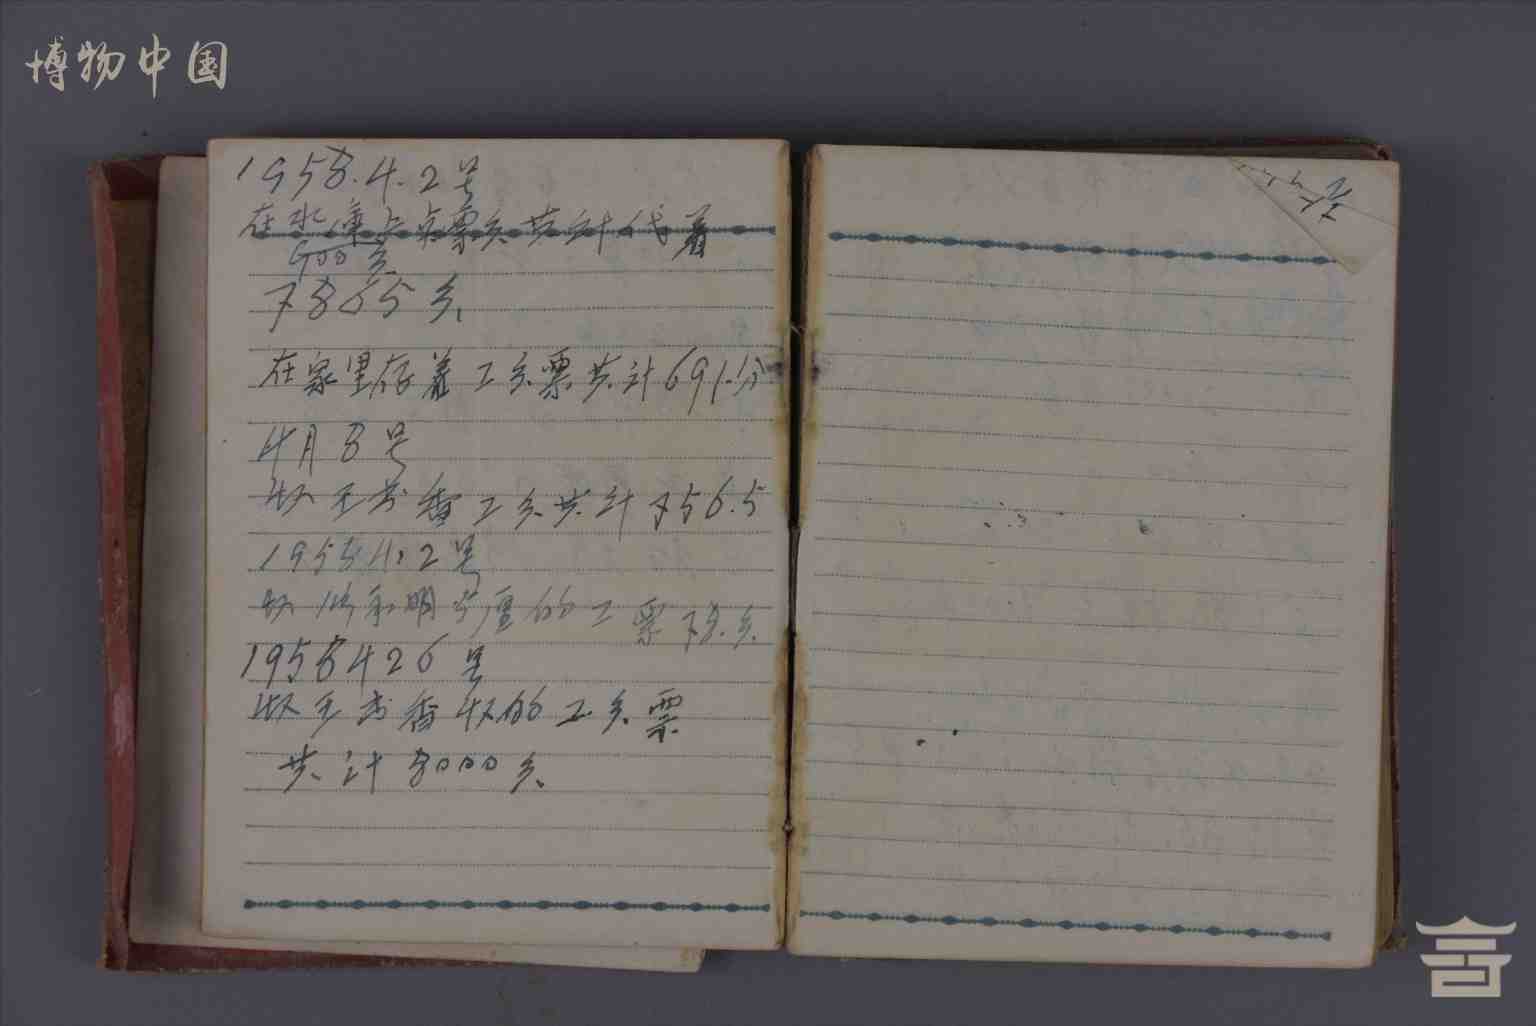 博物中国
1958.4.2号
在水库上点票分共计代着
900分
7865分
在家里存着工分票共计691.分
4月8号
收王书香工分共计756.5
1958 4.2号
收 明 的工票
1958 4 26号
收王书香收的工分票
共计8000分